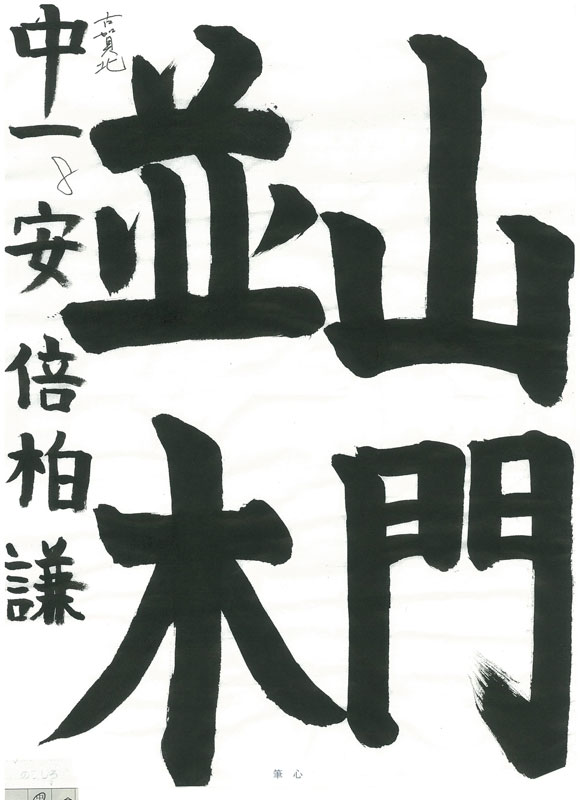 山門
並木
古賀北
中一 安倍柏謙
8
筆心
のこしろ